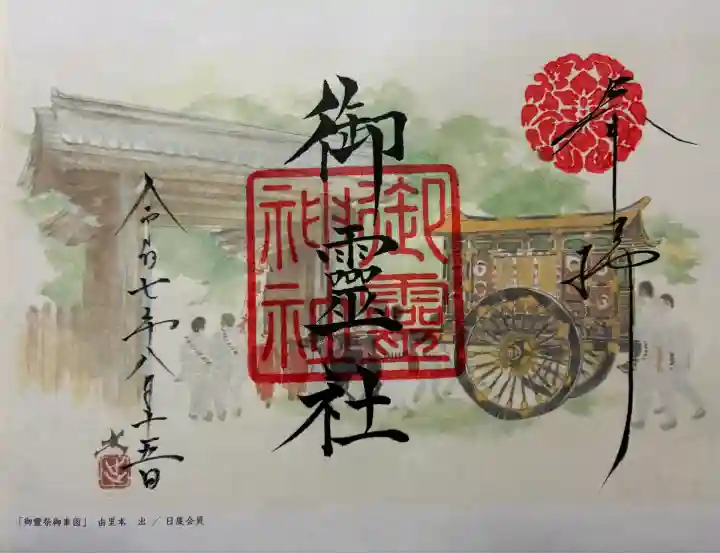 奉拝
御靈社
御靈神社
令和七年八月十五日
「御霊祭御車図」 由里本 出 / 日展会員